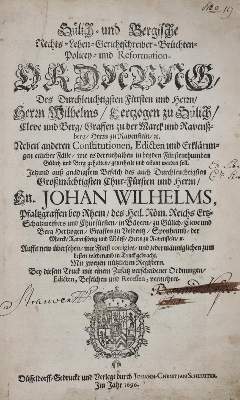 Gülich- und Bergische
Rechts-Lehen-Gerichtschreiber-Brüchten-
Policey- und Reformation-
ORDNUNG,
Des Durchleuchtigsten Fürsten und Herrn,
Herrn Wilhelm, Hertzogen zu Gülich/
Cleve und Berg/ Graffen zu der Marck und Ravens-
berg/ Herrn zu Ravenstein/ ꝛc.
Neben anderen Constitutionen, Edicten und Erklärun-
gen etlicher Fälle/ wie es dernthalben in beyden Fürstenthumben
Gülich und Berg gehalten/
Jetzund auß gnädigstem Befelch des auch Durchleuchtigsten
Großmächtigsten Chur-Fürsten und Herrn/
Hn. JOHAN WILHELMS,
Pfaltzgraffen bey Rhein/ des Heil. Röm. Reichs Ertz-
Schatzmeistern und Churfürsten/ in Bayern/ zu Gülich/ Cleve und
Berg Hertzogen/ Graffen zu Veldentz/ Sponheimb/ der
Marck/ Ravensberg und Mörs/ Herrn zu Ravenstein/ ꝛc.
Auffs new übersehen/ mit Fleiß corrigirt/ und jedermänniglichen zum
besten widerumb in Truck gebracht.
Mit zweyen nützlichen Registern.
Bey diesem Truck mit einem Zusatz verschiedener Ordnungen/
Edicten, Befelchen und Recessen, vermehret.
Düsseldorff/ Gedruckt und Verlegt durch JOHANN-CHRISTIAN SCHLEUTER.
Im Jahr 1696.